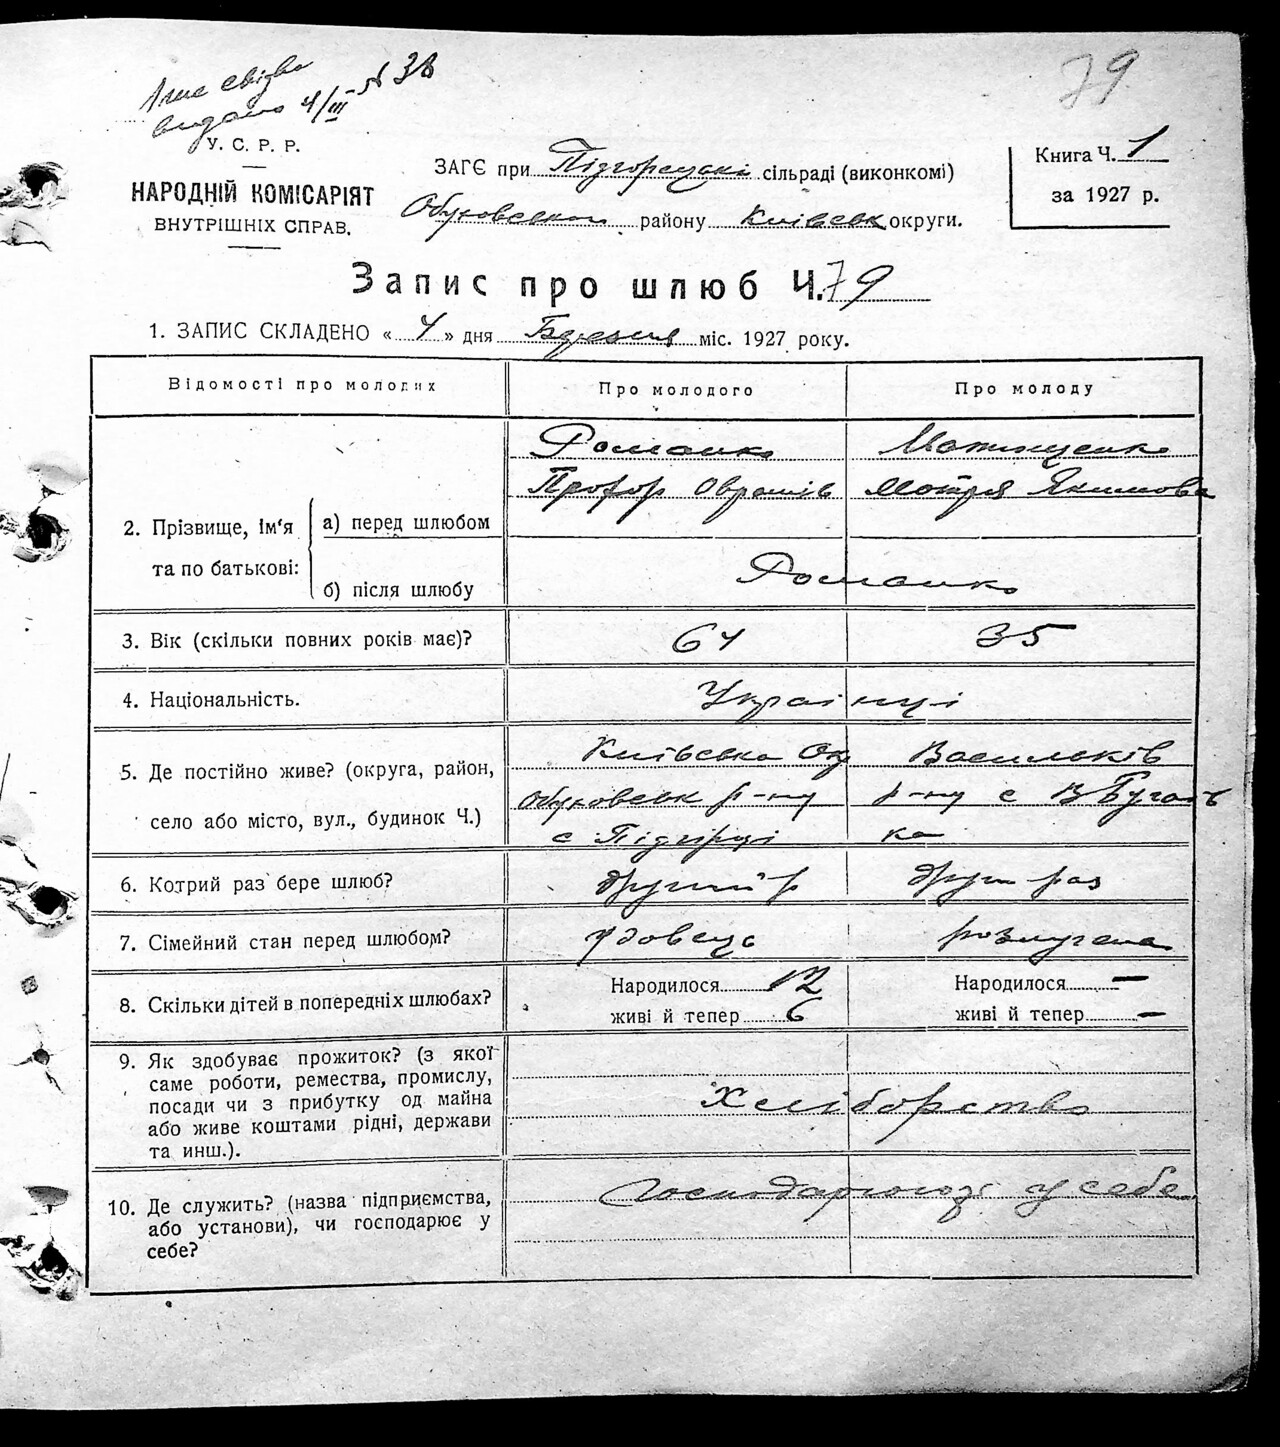 видано 4/III N 38
79
У. С. Р. Р.
НАРОДНІЙ КОМІСАРІЯТ
ВНУТРІШНІХ СПРАВ.
ЗАГЄ при Підгорецькі сільраді (виконкомі)
Обуховськом району Київськ округи.
Книга Ч. 1
за 1927 р.
Запис про шлюб Ч. 79
1. ЗАПИС СКЛАДЕНО « 4 » дня Березня міс. 1927 року.
Відомості про молодих
Про молодого
Про молоду
2. Прізвище, ім'я та по батькові:
а) перед шлюбом
Романко
Прохор
Матющенко
Мотря Якимова
б) після шлюбу
Романко
3. Вік (скільки повних років має)?
64
35
4. Національність.
Українці
5. Де постійно живе? (округа, район,
село або місто, вул., будинок Ч.)
Київська Ок
Обуховськ р-ну
с Підгірці
Васильків
р-ну с В Бугаїв
ка
6. Котрий раз бере шлюб?
другий р
други раз
7. Сімейний стан перед шлюбом?
удовець
розлучена
8. Скільки дітей в попередніх шлюбах?
Народилося 12
живі й тепер 6
Народилося —
живі й тепер —
9. Як здобуває прожиток? (з якої
саме роботи, ремества, промислу,
посади чи з прибутку од майна
або живе коштами рідні, держави
та инш.).
Хліборство
10. Де служить? (назва підприємства,
або установи), чи господарює у
себе?
у себе